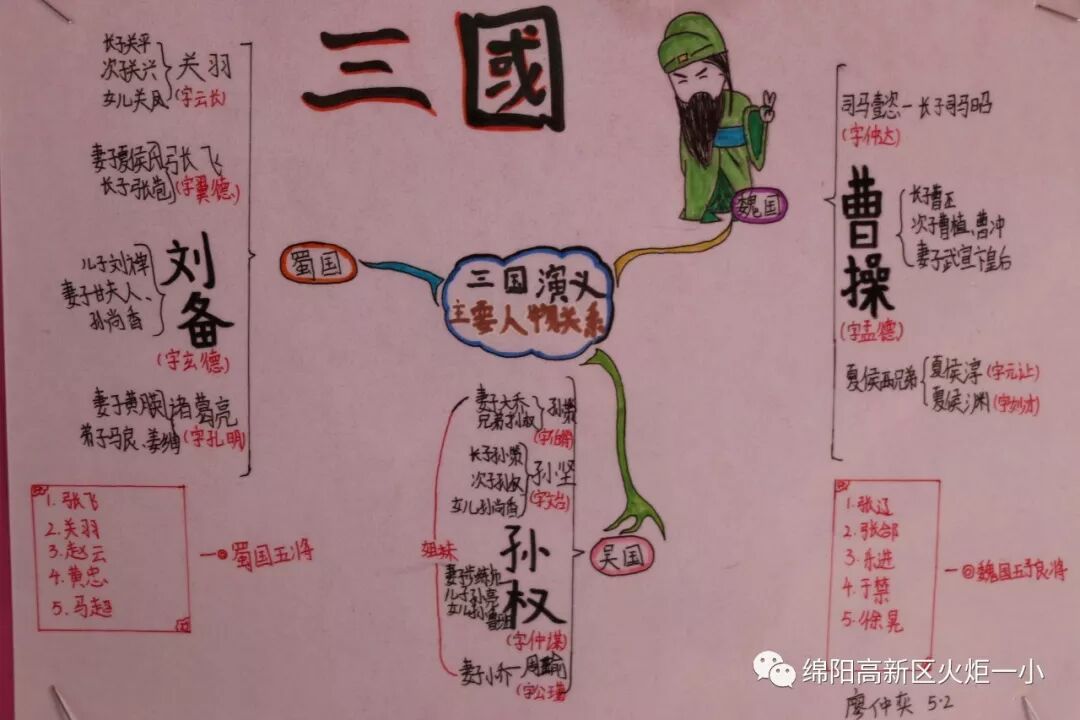 三國
长子关平
次子关兴
女儿关凤
关羽
(字云长)
妻子夏侯氏
长子张苞
张飞
(字翼德)
儿子刘禅
妻子甘夫人、
孙尚香
刘备
(字玄德)
妻子黄
弟子马良、姜维
诸葛亮
(字孔明)
1.张飞
2.关羽
3.赵云
4.黄忠
5.马超
蜀国五将
蜀国
三国演义
主要人物关系
魏国
司马懿 一 长子司马昭
(字仲达)
曹操
(字孟德)
长子曹丕
次子曹植、曹冲
妻子武宣卞皇后
夏侯两兄弟
夏侯淳(字元让)
夏侯渊(字妙才)
1.张辽
2.张郃
3.乐进
4.于禁
5.徐晃
魏国五子良将
吴国
妻子大乔
兄弟孙权
孙策
(字伯符)
长子孙策
次子孙权
女儿孙尚香
孙坚
(字文台)
姐妹
孙权
(字仲谋)
儿子孙亮
妻子小乔 一 周瑜
(字公瑾)
绵阳高新区火炬一小
廖仲奕 5.2